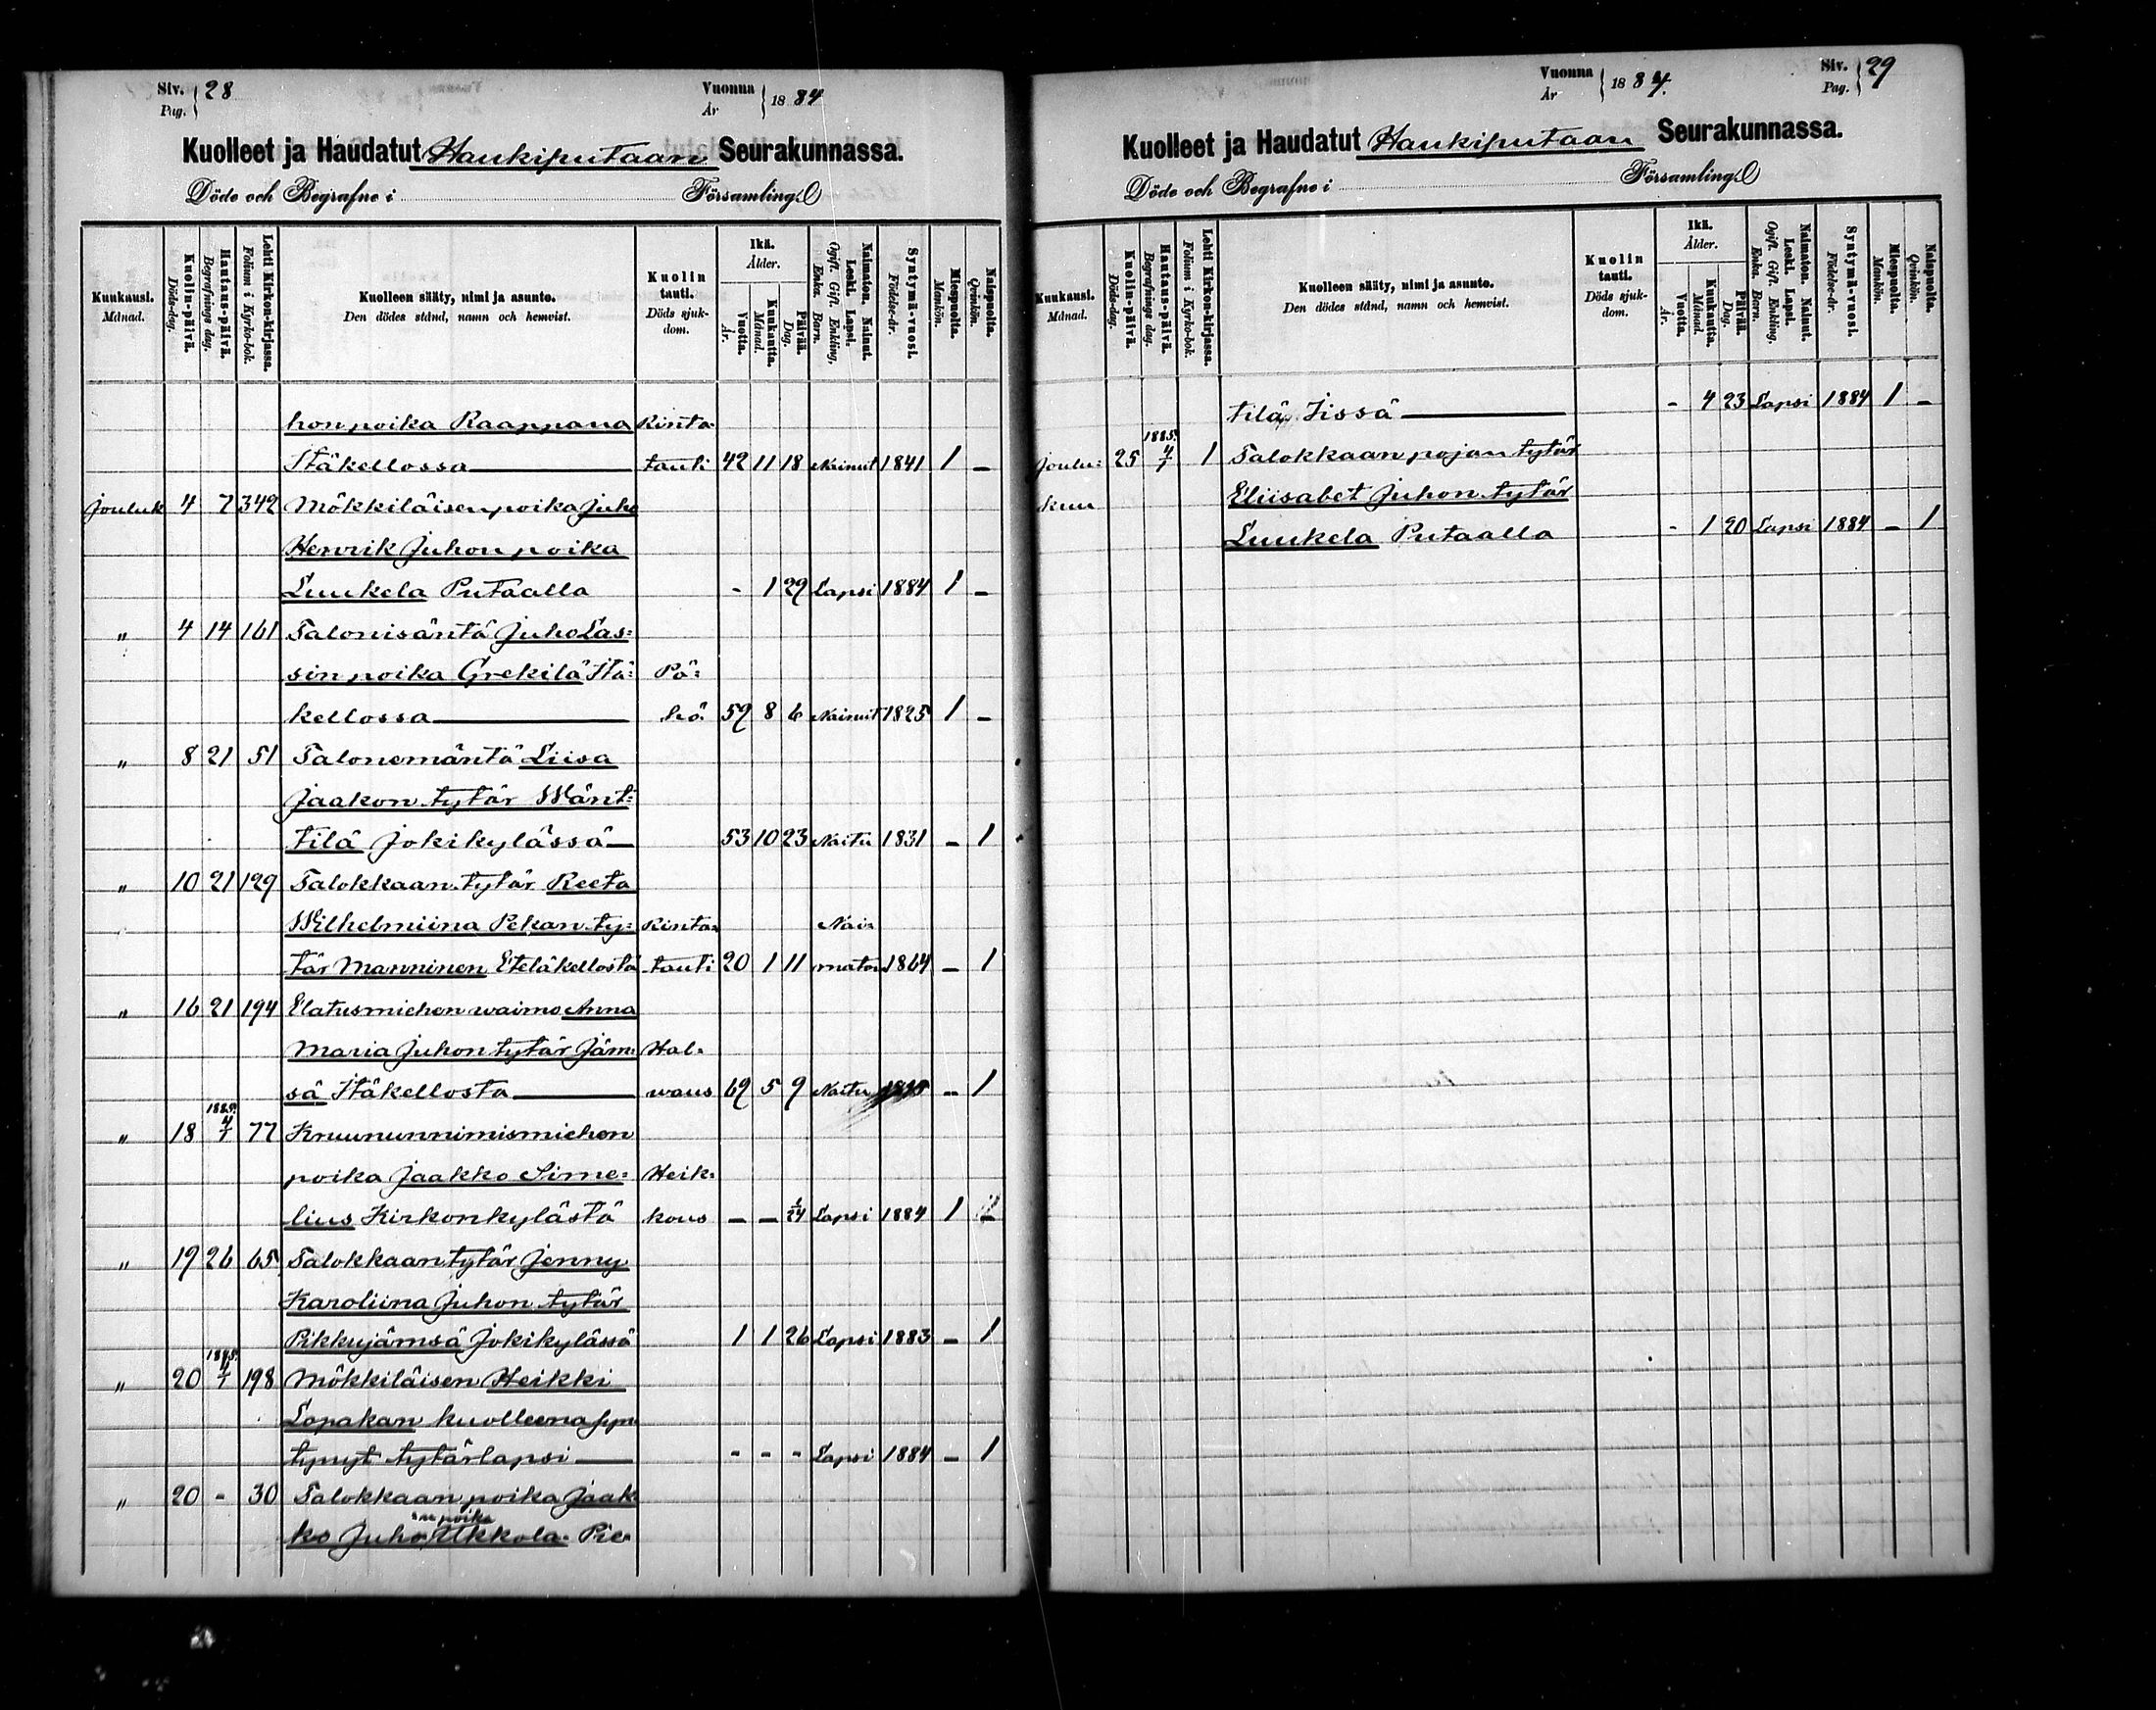 Siv. Pag. 28 Vuonna År 1884
Kuolleet ja Haudatut Haukiputaan Seurakunnassa.
Döde och Begrafne i Församling
Kuukausi. Månad. Kuolin-päivä. Döds-dag. Hautaus-päivä. Begrafnings dag. Lehti Kirkon-kirjassa. Folium i Kyrko-bok. Kuolleen sääty, nimi ja asunto. Den dödes stånd, namn och hemvist. Kuolin tauti. Döds sjuk-dom. Ikä. Ålder. Vuotta. År. Kuukautta. Månad. Päivää. Dag. Naimaton. Nainut. Leski. Lapsi. Ogift. Gift. Enkling, Enka. Barn. Syntymä-vuosi. Födelse-år. Miespuolta. Mankön. Naispuolta. Qvinkön.
hon poika Raappana Rinta-
Itäkellossa tauti 42 11 18 Nainut 1841 1 –
Jouluk 4 7 342 Mökkiläisen poika Juho
Henrik Juhon poika
Luukela Putaalla - 1 29 Lapsi 1884 1 –
„ 4 14 161 Talonisäntä Juho Las=
sin poika Grekilä Itä= Pö=
kellossa hö. 59 8 6 Nainut 1825 1 –
„ 8 21 51 Talonemäntä Liisa
Jaakon tytär Wänt=
tilä Jokikylässä 53 10 23 Naitu 1831 – 1
„ 10 21 129 Talokkaan tytär Reeta
Wilhelmiina Pekan ty= Rinta= Nai=
tär Manninen Eteläkellosta tauti 20 1 11 maton 1864 – 1
„ 16 21 194 Elatusmiehen waimo Anna
Maria Juhon tytär Jäm= Hal=
sä Itäkellosta waus 69 5 9 Naitu 1815 – 1
„ 18 1885. 4/1 77 Kruununnimismiehen
poika Jaakko Sime= Heik=
lius Kirkonkylästä kous – – 1/24 Lapsi 1884 1 –
„ 19 26 65 Talokkaan tytär Jenny
Karoliina Juhon tytär
Pikkujämsä Jokikylässä 1 1 26 Lapsi 1883 – 1
„ 20 1885. 4/1 198 Mökkiläisen Heikki
Lopakan kuolleena syn
tynyt tytärlapsi - - - Lapsi 1884 – 1
„ 20 - 30 Talokkaan poika Jaak
ko Juhonpoika Ukkola Pie=
Vuonna År 1884. Siv. Pag. 29
Kuolleet ja Haudatut Haukiputaan Seurakunnassa.
Döde och Begrafne i Församling
Kuukausi. Månad. Kuolin-päivä. Döds-dag. Hautaus-päivä. Begrafnings dag. Lehti Kirkon-kirjassa. Folium i Kyrko-bok. Kuolleen sääty, nimi ja asunto. Den dödes stånd, namn och hemvist. Kuolin tauti. Döds sjuk-dom. Ikä. Ålder. Vuotta. År. Kuukautta. Månad. Päivää. Dag. Naimaton. Nainut. Leski. Lapsi. Ogift. Gift. Enkling, Enka. Barn. Syntymä-vuosi. Födelse-år. Miespuolta. Mankön. Naispuolta. Qvinkön.
tilä Iissä - 4 23 Lapsi 1884 1 –
Joulu= 25 1885. 4/1 1 Talokkaan pojan tytär
kuu Eliisabet Juhon tytär
Luukela Putaalla - 1 20 Lapsi 1884 – 1